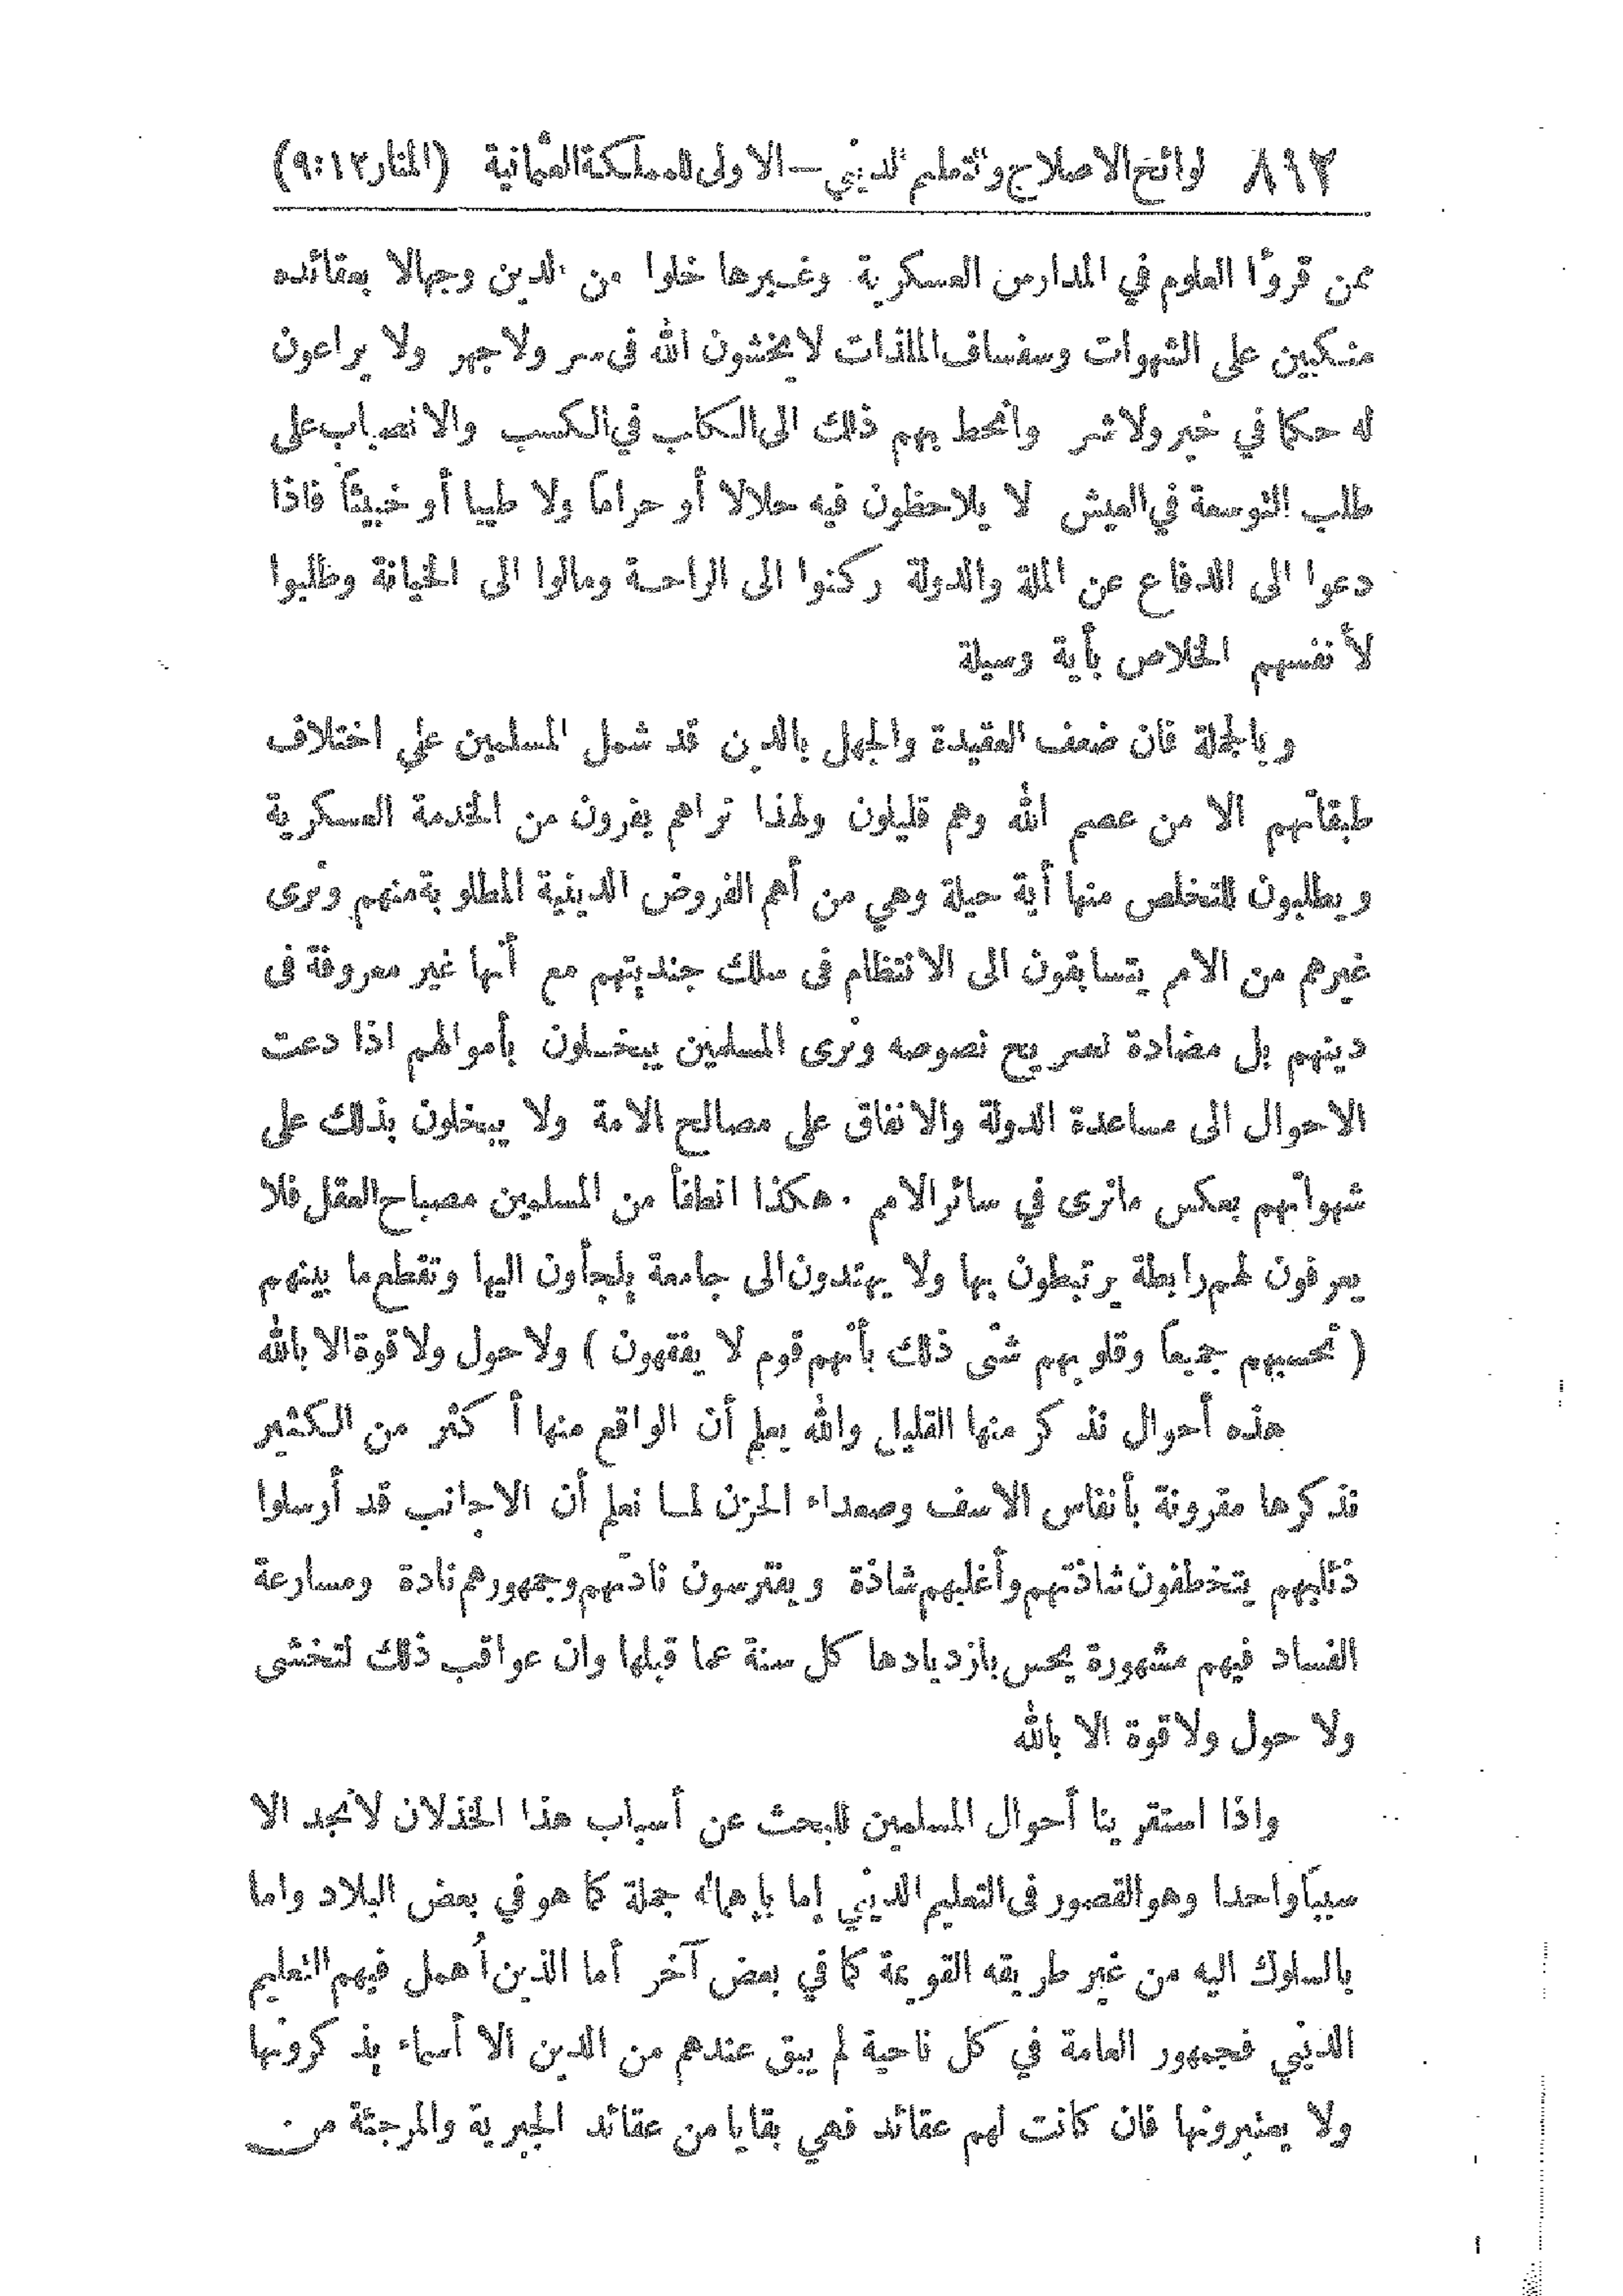 ٨٩٢ لوائح الاصلاح والتعليم الديني — الاولى للمملكة العثمانية (المنار ٩:١٢)
ممن قرؤا العلوم في المدارس العسكرية وغيرها خلوا من الدين وجهالا بعقائده
منكبين على الشهوات وسفساف الملذات لا يخشون الله في سر ولا جهر ولا يراعون
له حكما في خير ولا شر وانحط بهم ذلك الى الكلب في الكسب والانصباب على
طلب التوسعة في العيش لا يلاحظون فيه حلالا أو حراما ولا طيبا أو خبيثا فاذا
دعوا الى الدفاع عن الملة والدولة ركنوا الى الراحة ومالوا الى الخيانة وطلبوا
لأنفسهم الخلاص بأية وسيلة
وبالجملة فان ضعف العقيدة والجهل بالدين قد شمل المسلمين على اختلاف
طبقاتهم الا من عصم الله وهم قليلون ولهذا تراهم يفرون من الخدمة العسكرية
ويطلبون للتخلص منها أية حيلة وهي من أهم الفروض الدينية المطلوبة منهم ونرى
غيرهم من الامم يتسابقون الى الانتظام فى سلك جنديتهم مع أنها غير معروفة فى
دينهم بل مضادة لصريح نصوصه ونرى المسلمين يبخلون بأموالهم اذا دعت
الاحوال الى مساعدة الدولة والانفاق على مصالح الامة ولا يبخلون بذلك على
شهواتهم بعكس مانرى في سائر الامم . هكذا انطفأ من المسلمين مصباح العقل فلا
يعرفون لهم رابطة يرتبطون بها ولا يهتدون الى جامعة يلجأون اليها وتقطع ما بينهم
( تحسبهم جميعا وقلوبهم شتى ذلك بأنهم قوم لا يفقهون ) ولا حول ولا قوة الا بالله
هذه أحوال نذكر منها القليل والله يعلم أن الواقع منها أكثر من الكثير
نذكرها مقرونة بأنفاس الاسف وصعداء الحزن لما نعلم أن الاجانب قد أرسلوا
ذئابهم يتخطفون شاذتهم وأغلبهم شاذة ويفترسون نادتهم وجمهورهم نادة ومسارعة
الفساد فيهم مشهورة يحس بازديادها كل سنة عما قبلها وان عواقب ذلك لتخشى
ولا حول ولا قوة الا بالله
واذا استقرينا أحوال المسلمين للبحث عن أسباب هذا الخذلان لا نجد الا
سببا واحدا وهو القصور فى التعليم الديني إما بإهماله جملة كما هو في بعض البلاد واما
بالسلوك اليه من غير طريقه القويمة كما في بعض آخر أما الذين أهمل فيهم التعليم
الديني فجمهور العامة في كل ناحية لم يبق عندهم من الدين الا أسماء يذكرونها
ولا يعتبرونها فان كانت لهم عقائد فهي بقايا من عقائد الجبرية والمرجئة من